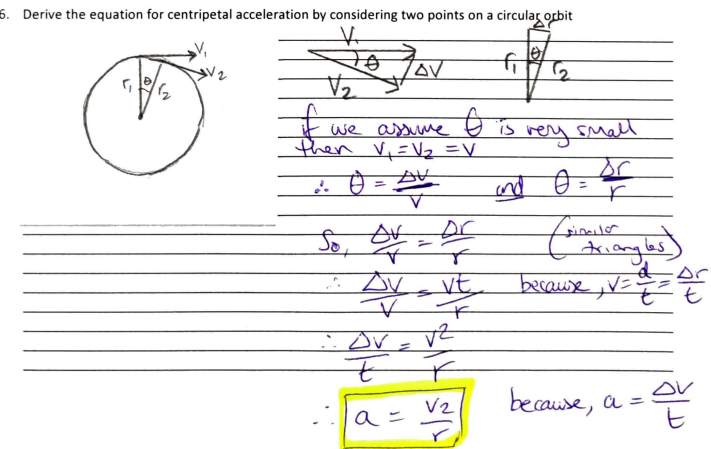 6. Derive the equation for centripetal acceleration by considering two points on a circular orbit
V₁
V₂
r₁ θ r₂
V₁
θ
V₂
ΔV
Δr
θ
r₁ r₂
if we assume θ is very small
then V₁ = V₂ = V
∴ θ = ΔV/V and θ = Δr/r
So, ΔV/V = Δr/r (similar triangles)
∴ ΔV/V = vt/r because, v = d/t = Δr/t
∴ ΔV/t = v²/r
∴ a = v²/r because, a = ΔV/t